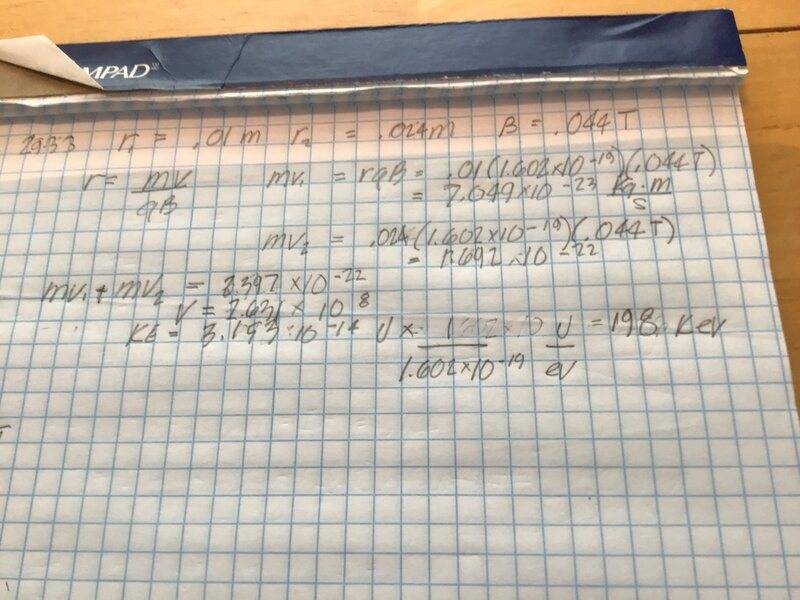 MPAD
29.33 r₁ = .01 m r₂ = .024m B = .044 T
r = mv/qB mv₁ = rqB = .01(1.602×10⁻¹⁹)(.044T)
= 7.049×10⁻²³ kg·m/s
mv₂ = .024(1.602×10⁻¹⁹)(.044T)
= 1.692 ×10⁻²²
mv₁ + mv₂ = 2.397 ×10⁻²²
V = 2.631 × 10⁸
KE = 3.153·10⁻¹⁴ J × /1.602×10⁻¹⁹ J/eV = 198. KeV